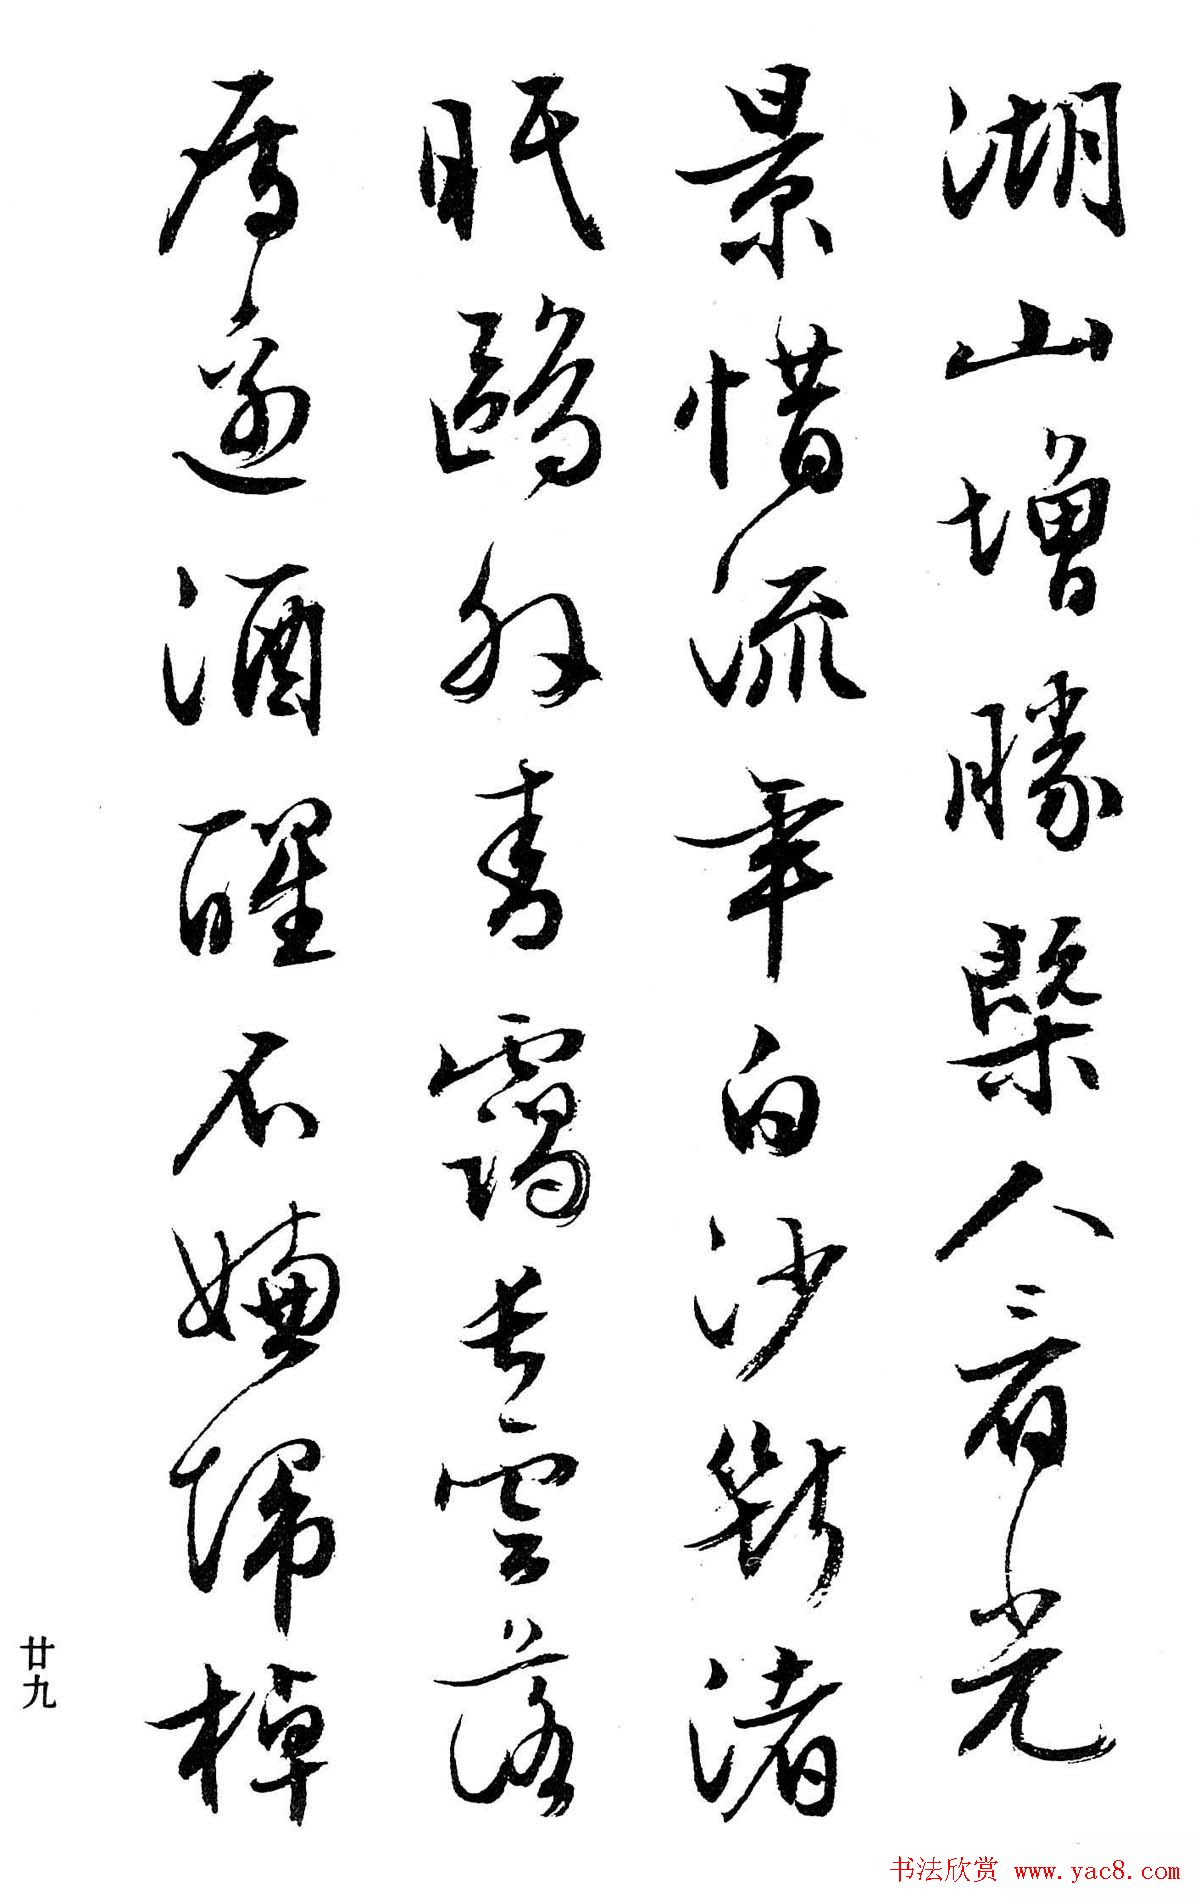 湖山增勝槩人看光
景惜流年白沙斷渚
眠鷗外青靄長雲落
雁邊酒醒不嫌歸棹
廿九
书法欣赏 www.yac8.com